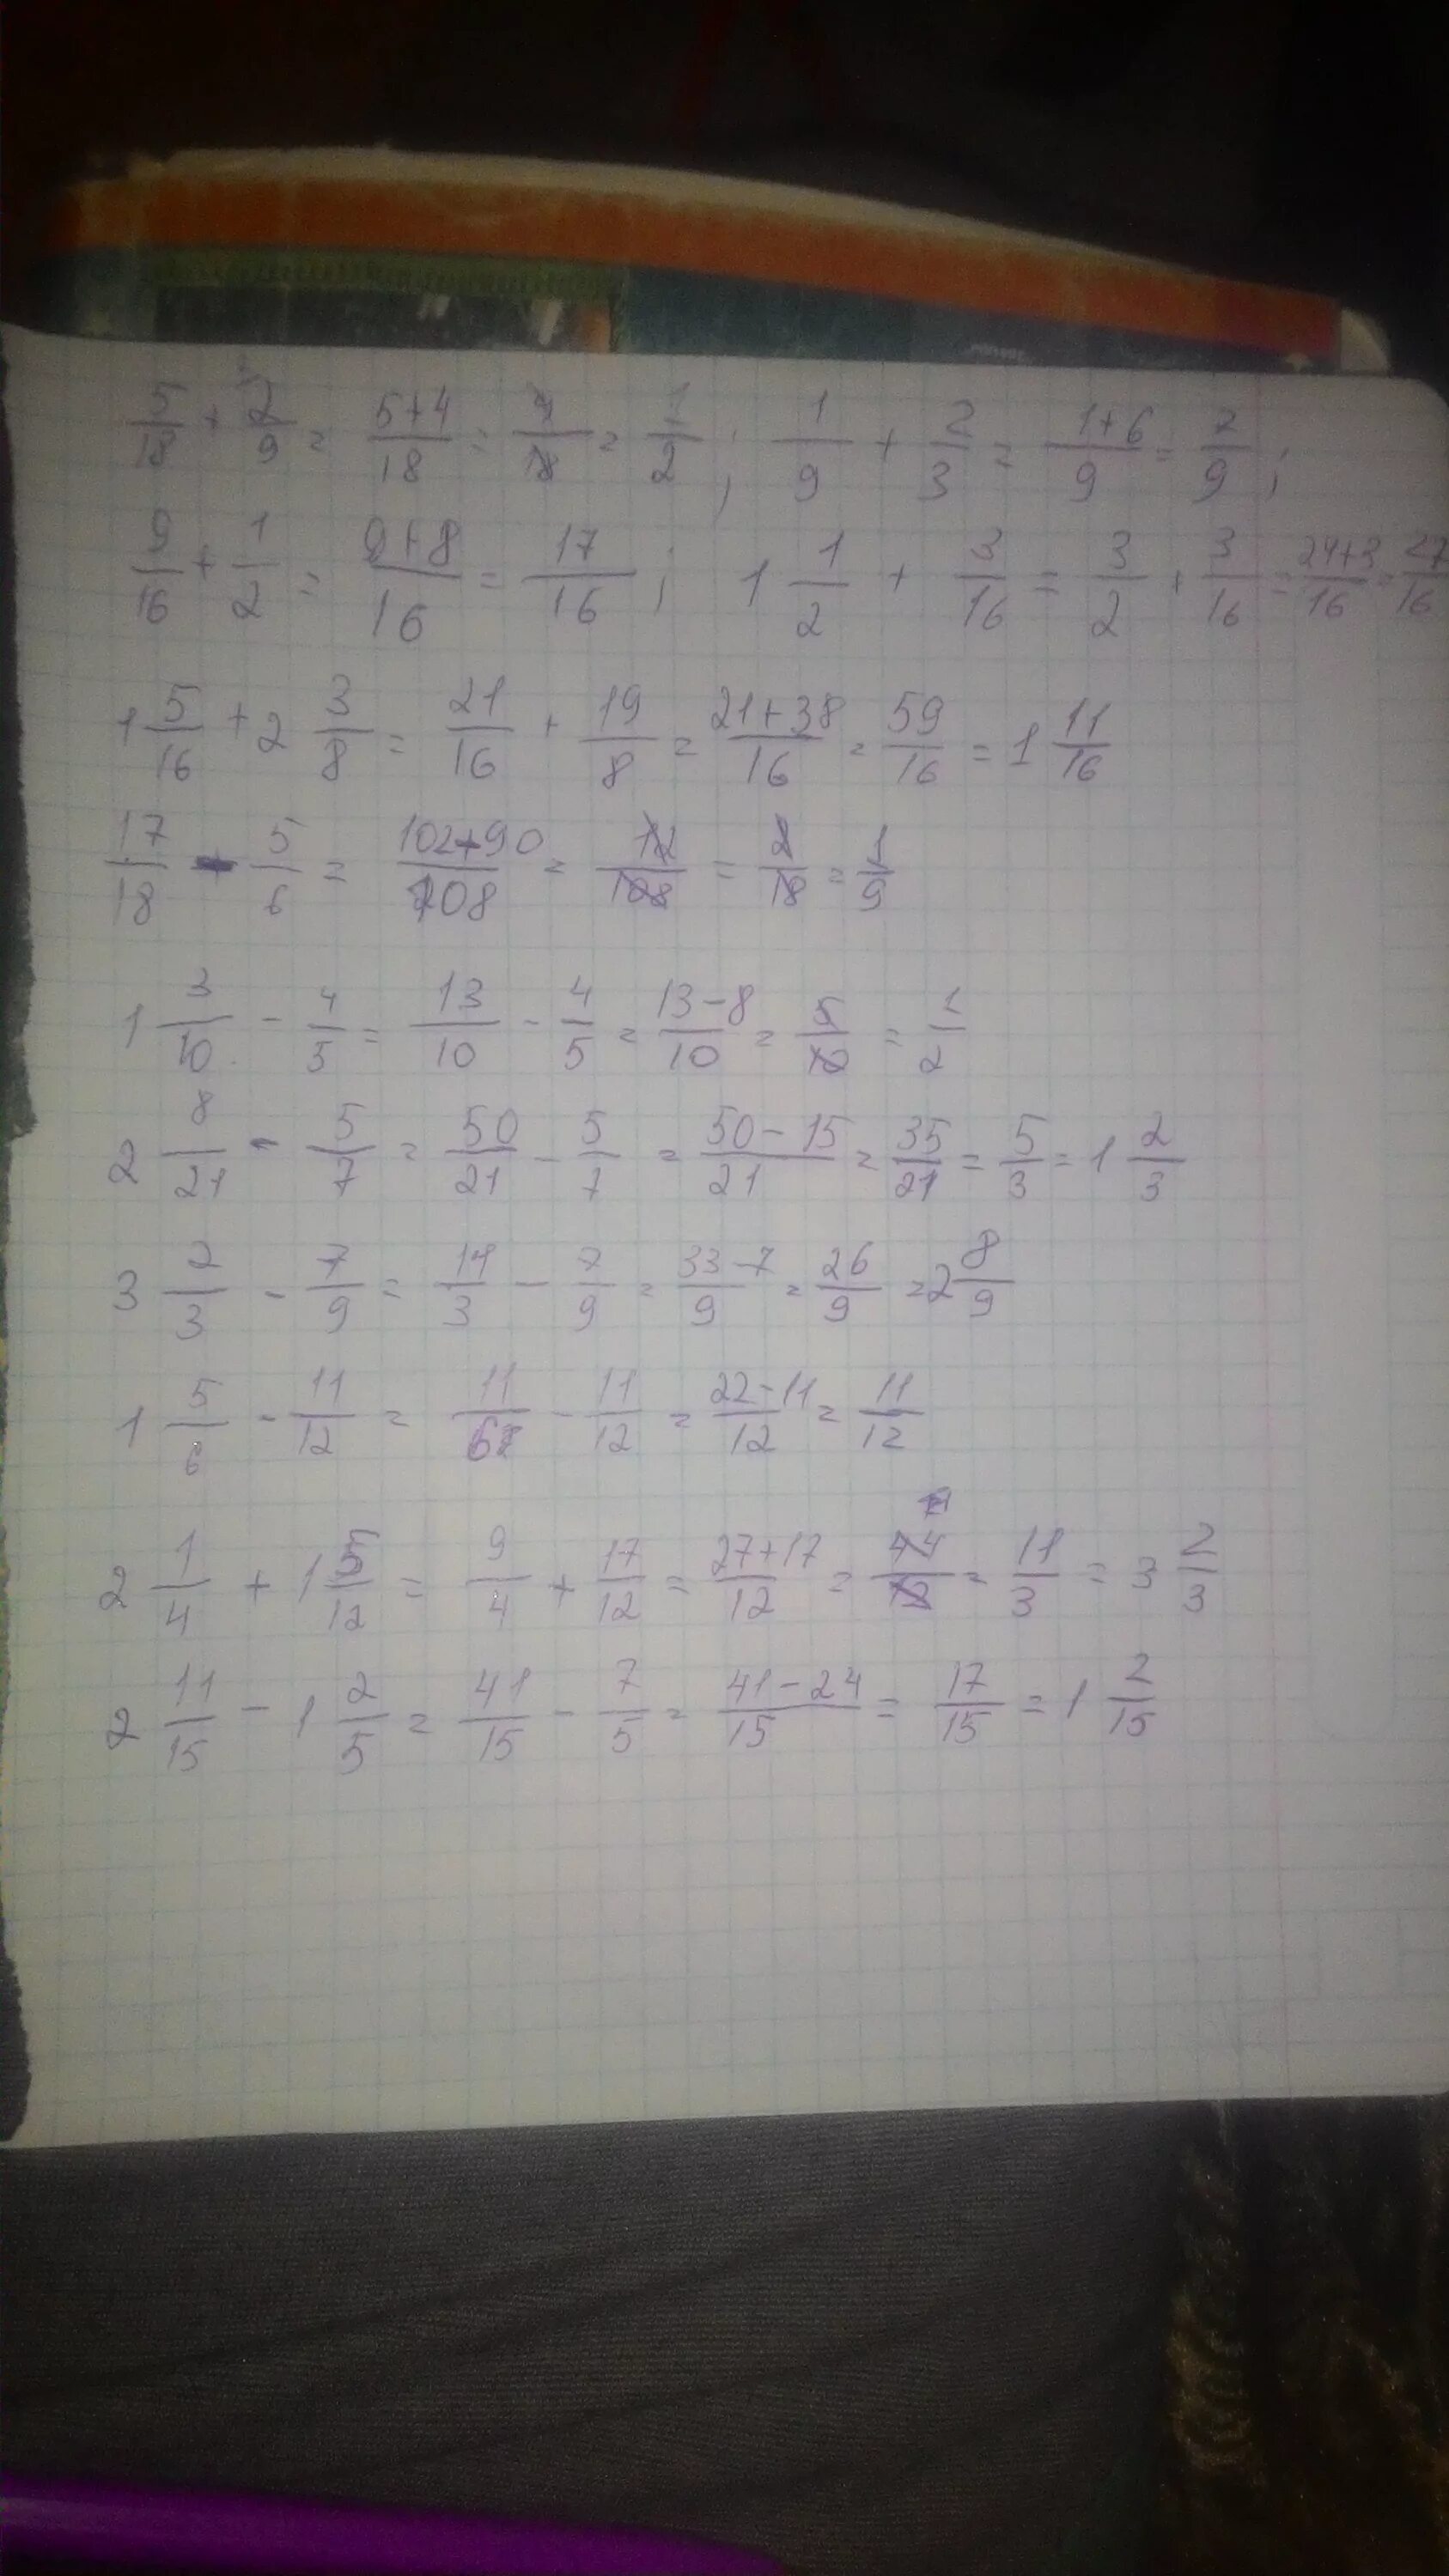 5/18 + 2/9 = 5+4/18 = 9/18 = 1/2 ; 1/9 + 2/3 = 1+6/9 = 7/9 ;
9/16 + 1/2 = 9+8/16 = 17/16 ; 1 1/2 + 3/16 = 3/2 + 3/16 = 24+3/16 = 27/16
1 5/16 + 2 3/8 = 21/16 + 19/8 = 21+38/16 = 59/16 = 1 11/16
17/18 - 5/6 = 102-90/108 = 12/108 = 2/18 = 1/9
1 3/10 - 4/5 = 13/10 - 4/5 = 13-8/10 = 5/10 = 1/2
2 8/21 - 5/7 = 50/21 - 5/7 = 50-15/21 = 35/21 = 5/3 = 1 2/3
3 2/3 - 7/9 = 11/3 - 7/9 = 33-7/9 = 26/9 = 2 8/9
1 5/6 - 11/12 = 11/6 - 11/12 = 22-11/12 = 11/12
2 1/4 + 1 5/12 = 9/4 + 17/12 = 27+17/12 = 44/12 = 11/3 = 3 2/3
2 11/15 - 1 2/5 = 41/15 - 7/5 = 41-24/15 = 17/15 = 1 2/15